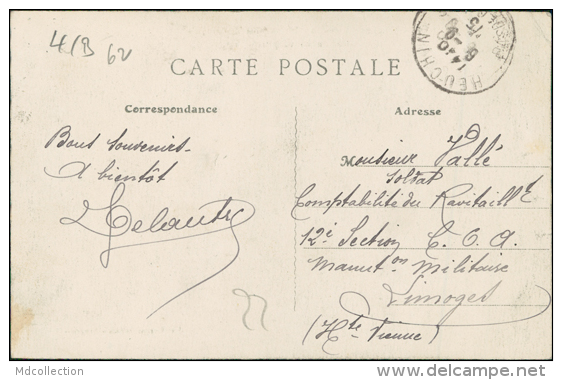 4/B 62
CARTE POSTALE
HEUCHIN
Correspondance
Adresse
Bons souvenirs
A bientôt
Monsieur Vallé
Soldat
Comptabilité du Ravitaillt
12e Section C. O. A.
Manuton Militaire
Limoges
(Hte Vienne)
Mdcollection
www.delcampe.net